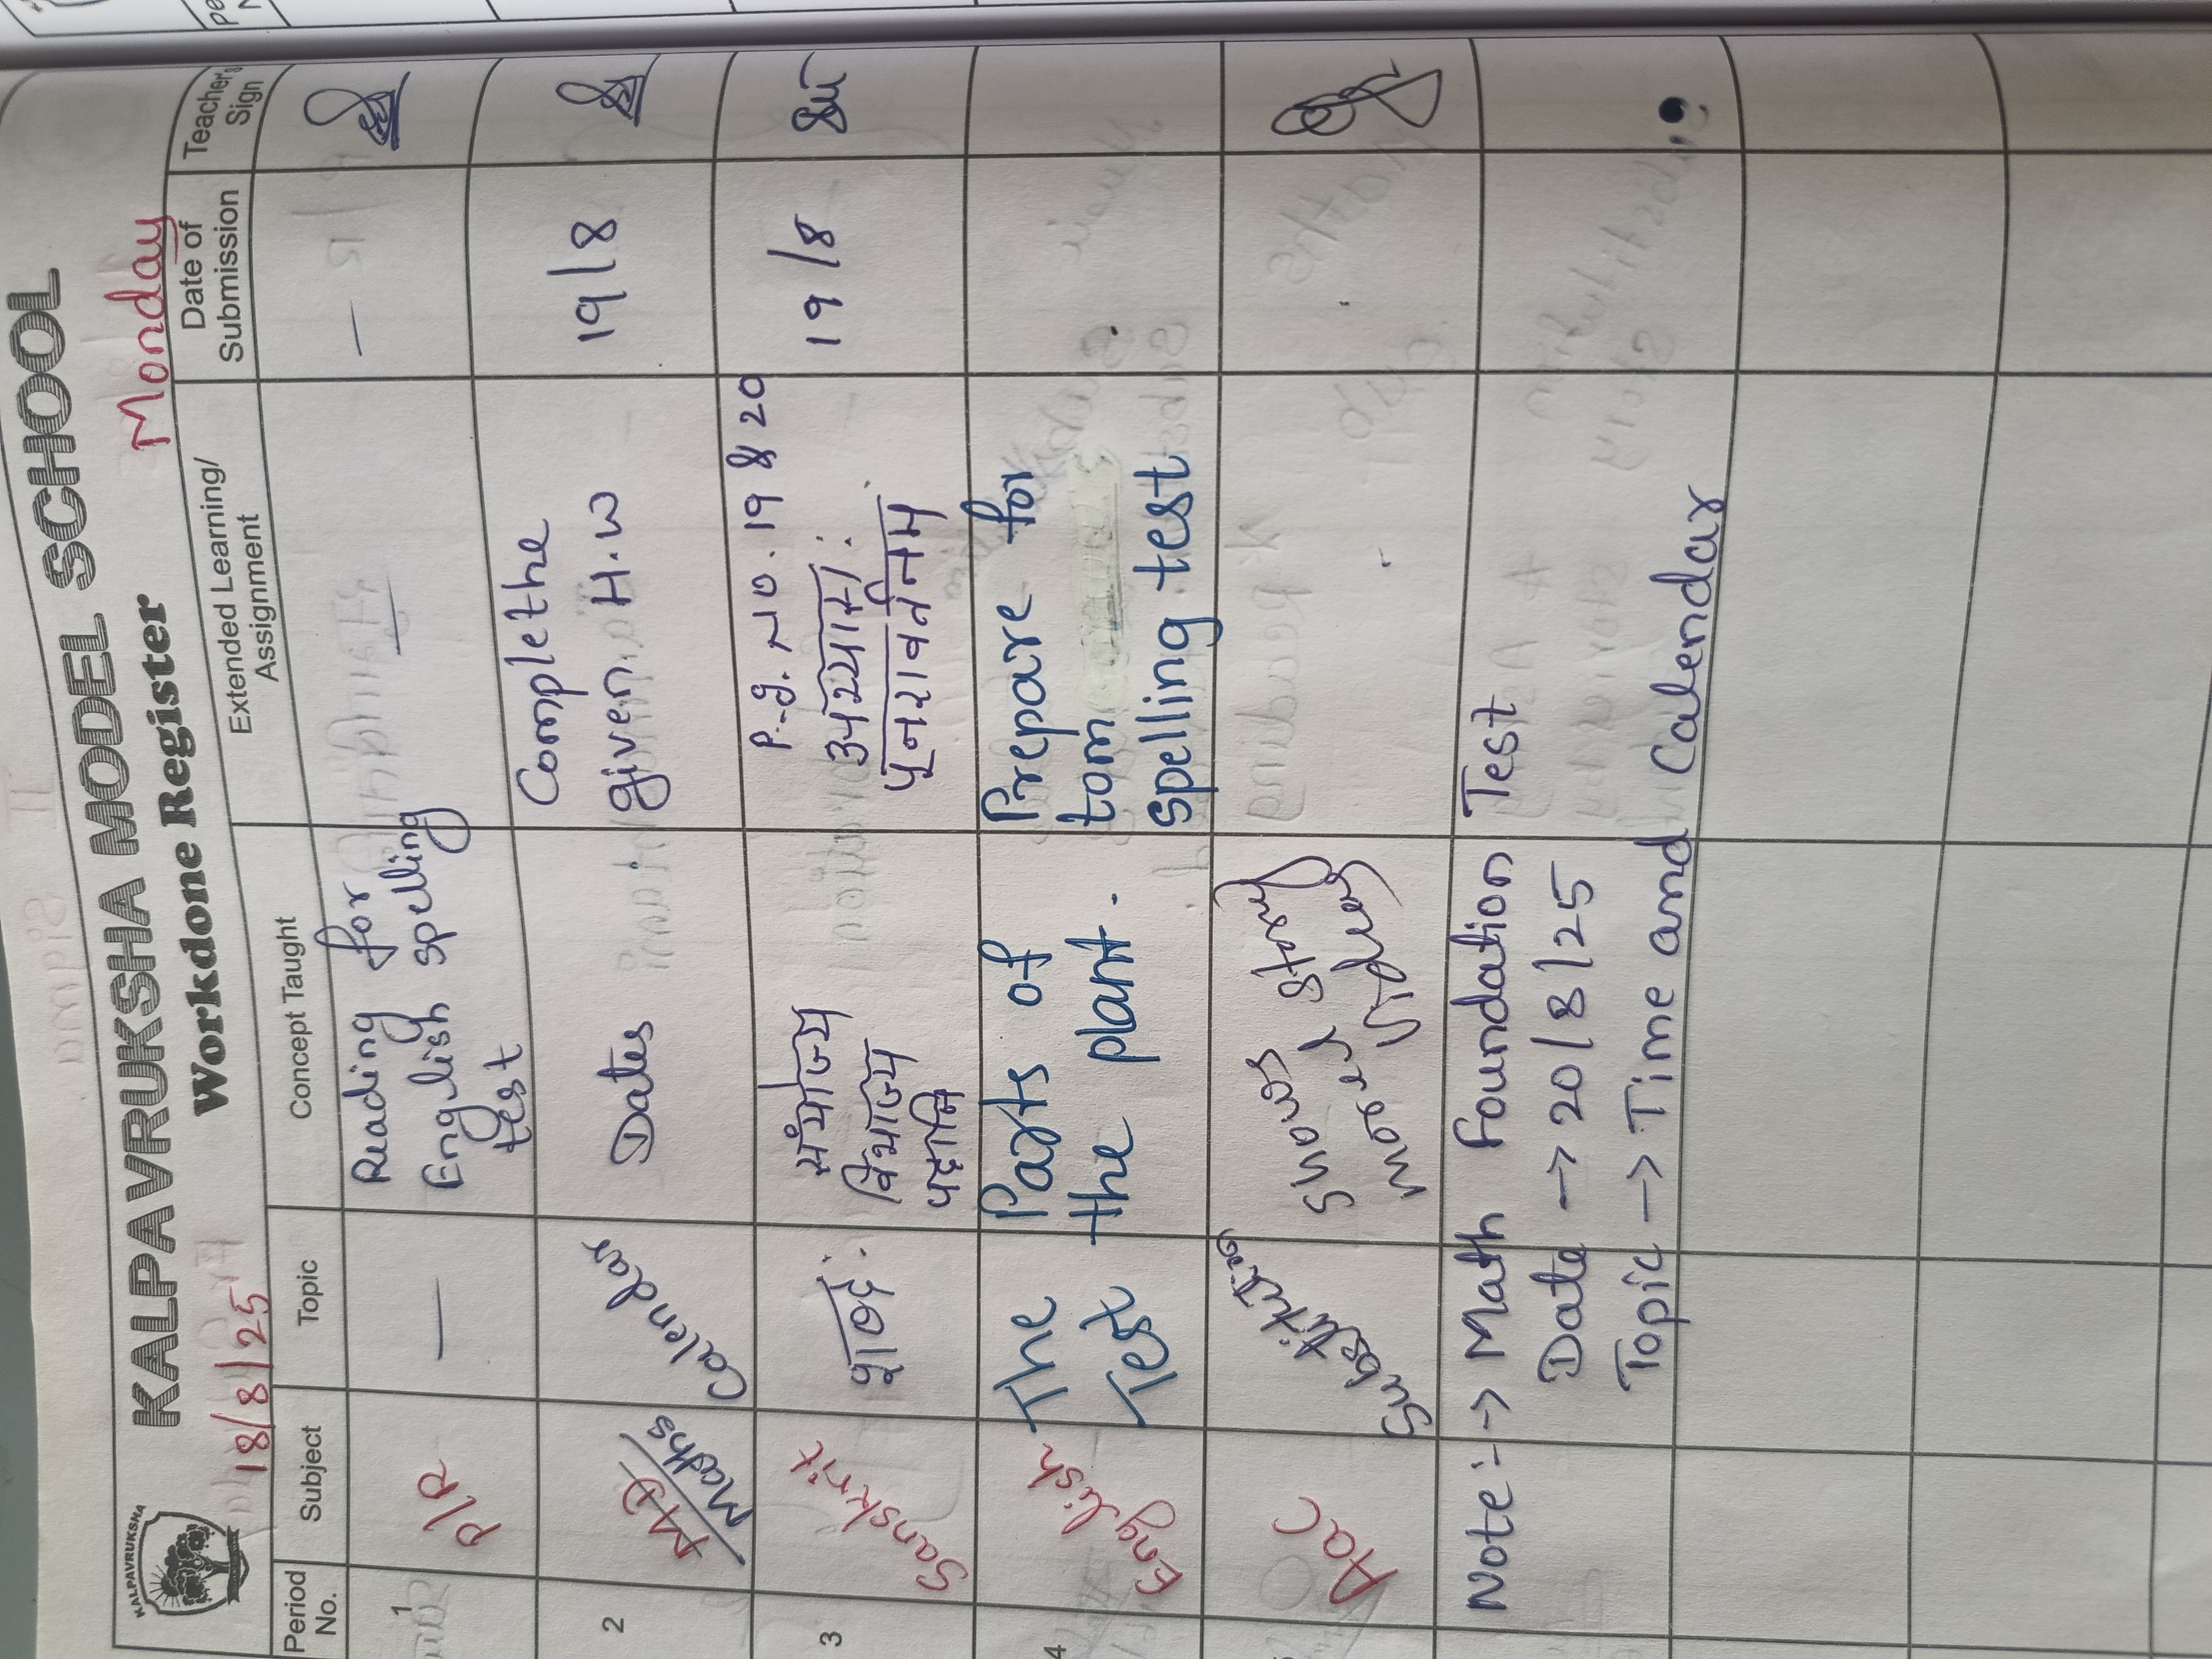 KALPAVRUKSHA
KALPAVRUKSHA MODEL SCHOOL
Workdone Register
18/8/25
Monday
Period No.
Subject
Topic
Concept Taught
Extended Learning/ Assignment
Date of Submission
Teacher's Sign
1
P/R
—
Reading for
English spelling
test
—
—
2
Maths
Calendar
Dates
Complete the
given H.W
19/8
3
Sanskrit
शब्द:
संयोज्य
विभाज्य
पदानि
P.g. No. 19 & 20
पुनरावर्तनम्
19/8
4
English
The
Test
Parts of
the plant.
Prepare for
tom
spelling test
AOC
Substitution
Shows story
moral videos
Note :-> Math Foundation Test
Date -> 20/8/25
Topic -> Time and Calendar